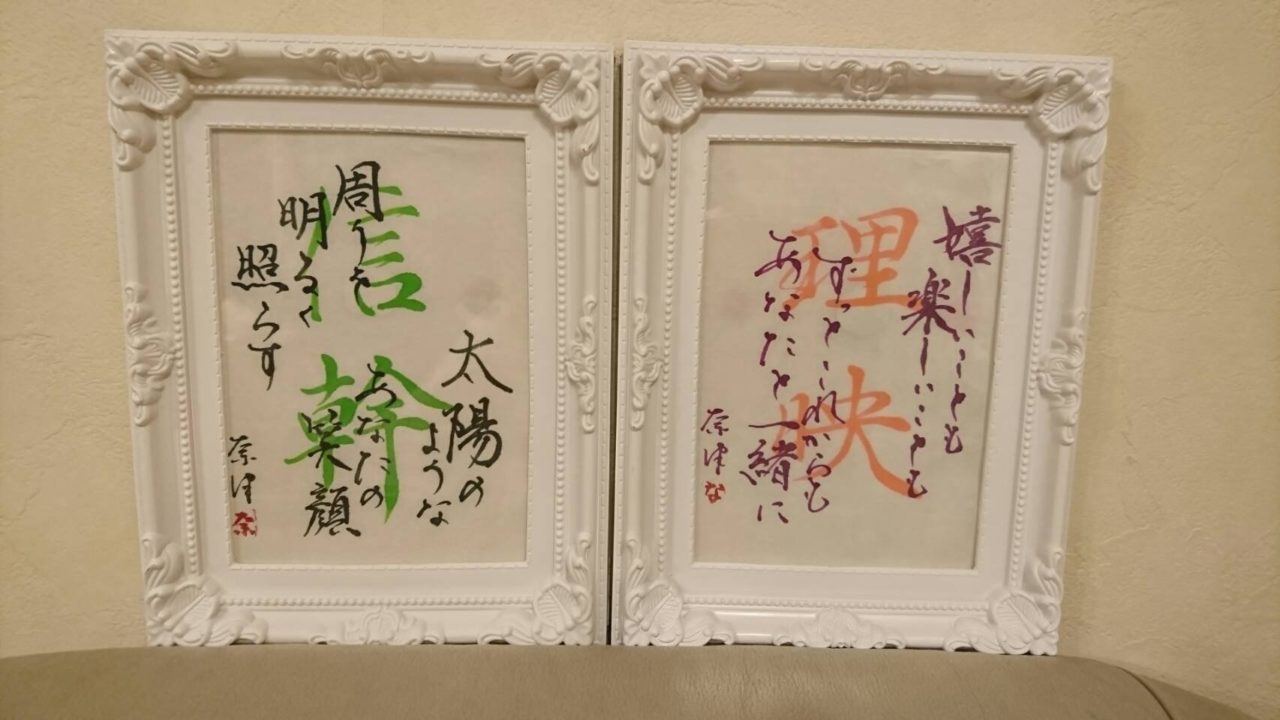 信幹
太陽の
ような
あなたの
笑顔
周りを
明るく
照らす
奈津
奈
理映
嬉しいことも
楽しいことも
ずっとこれからも
あなたと一緒に
奈津
な